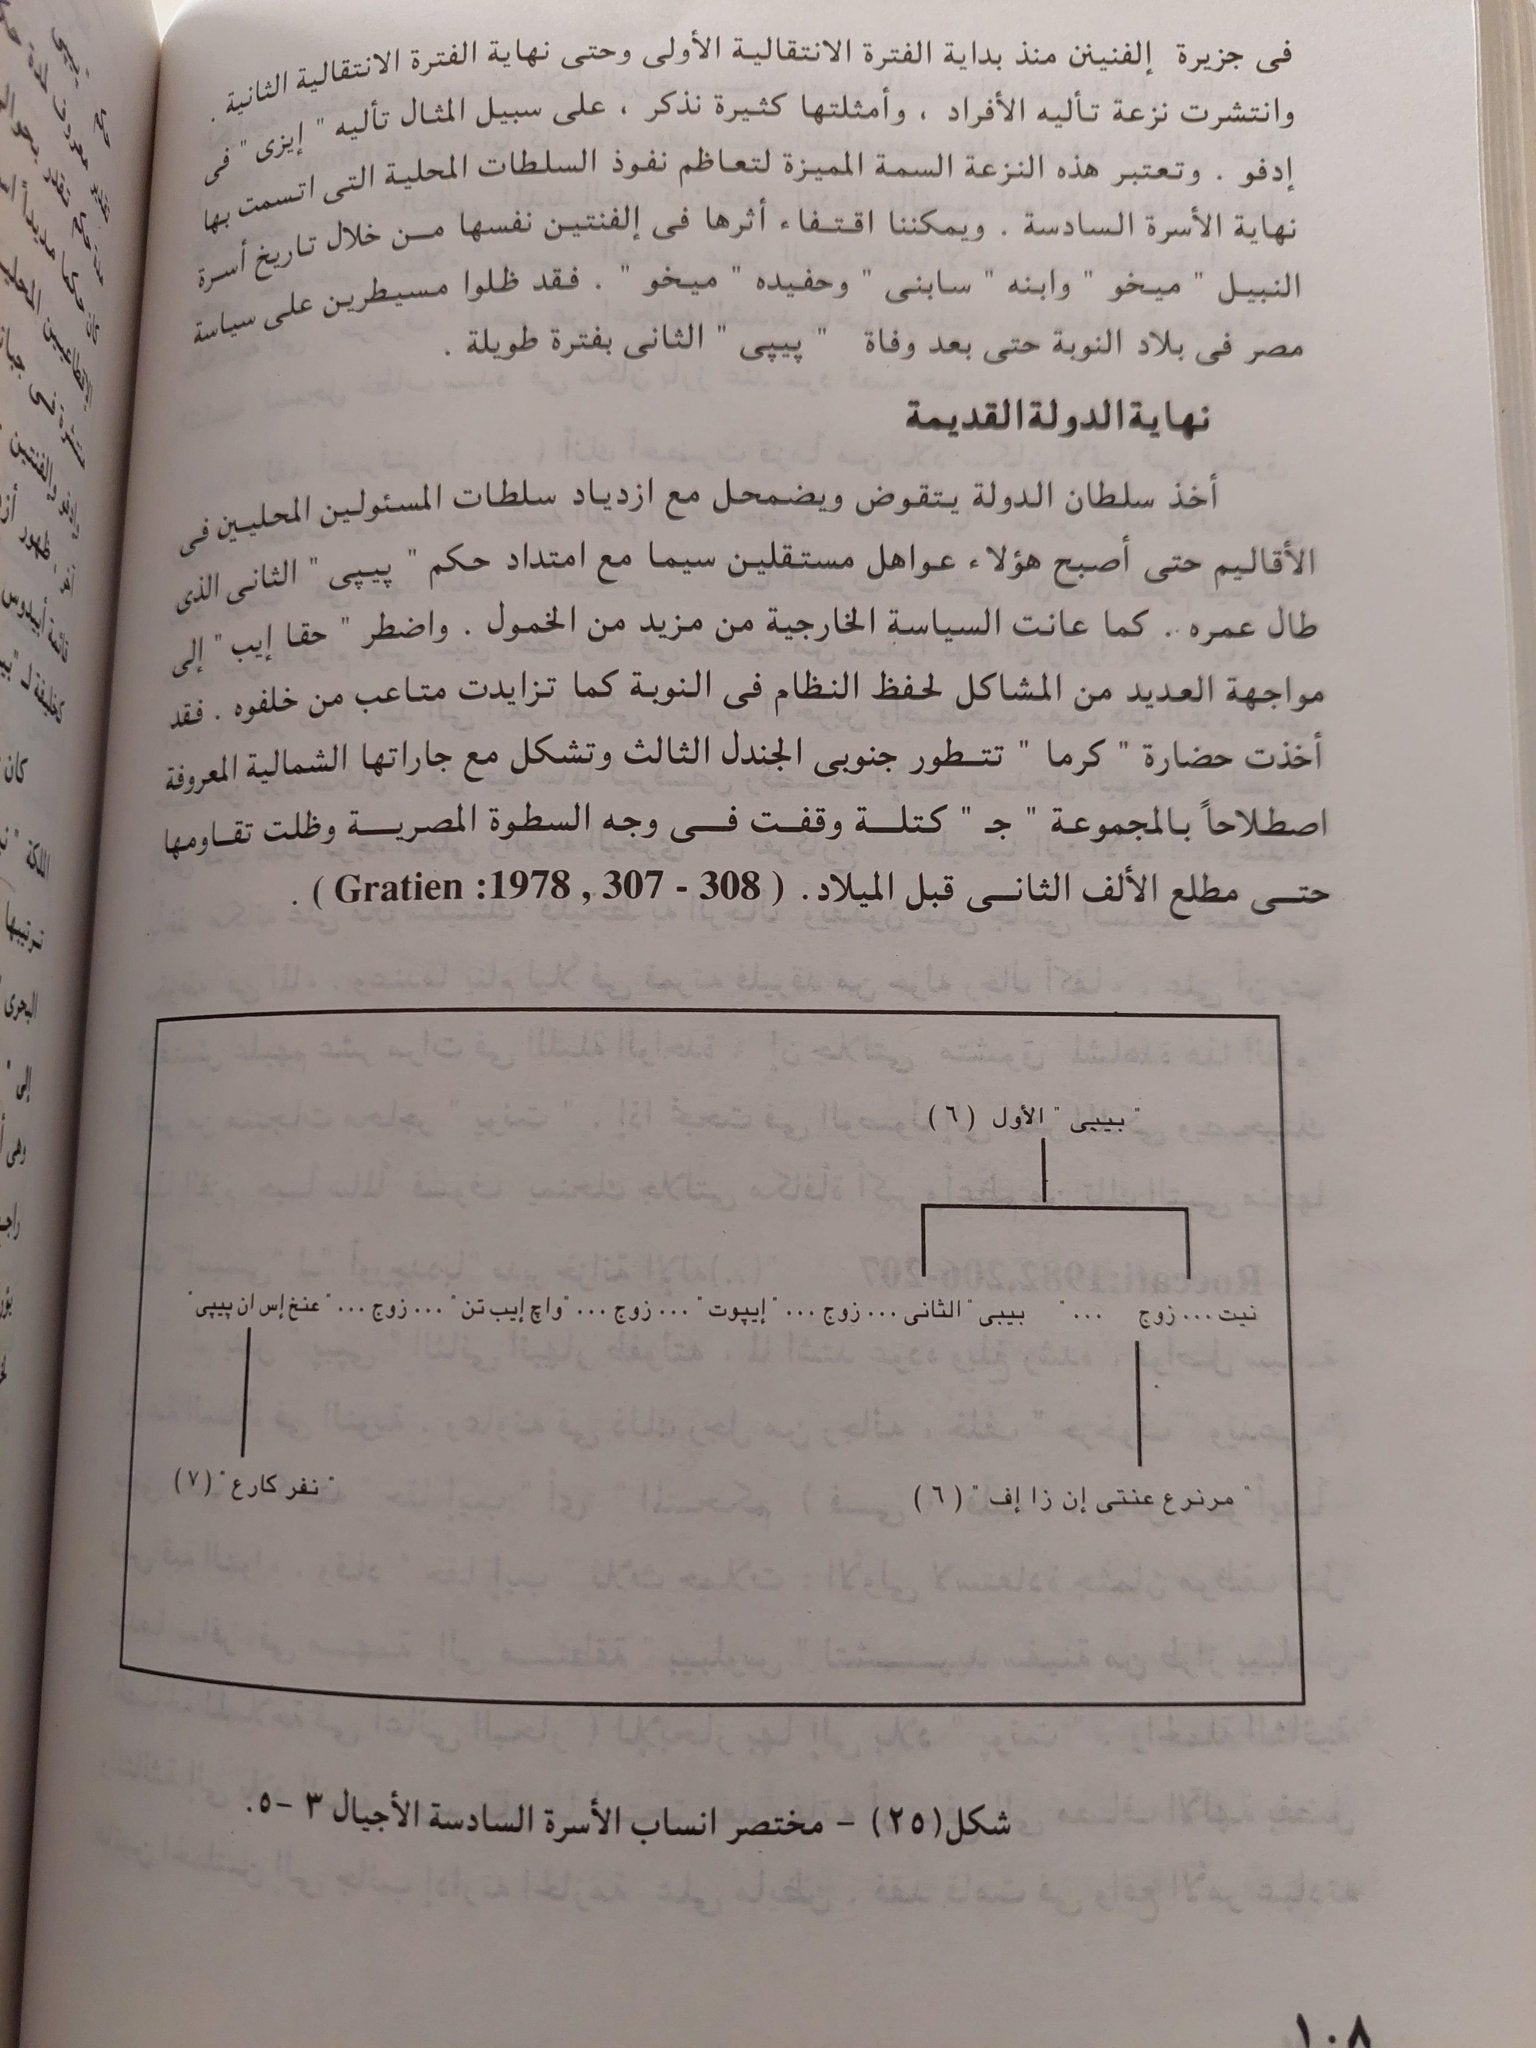 فى جزيرة إلفنينن منذ بداية الفترة الانتقالية الأولى وحتى نهاية الفترة الانتقالية الثانية .
وانتشرت نزعة تأليه الأفراد ، وأمثلتها كثيرة نذكر ، على سبيل المثال تأليه " إيزى " فى
إدفو . وتعتبر هذه النزعة السمة المميزة لتعاظم نفوذ السلطات المحلية التى اتسمت بها
نهاية الأسرة السادسة . ويمكننا اقتفاء أثرها فى إلفنتين نفسها من خلال تاريخ أسرة
النبيل " ميخو " وابنه " سابنى " وحفيده " ميخو " . فقد ظلوا مسيطرين على سياسة
مصر فى بلاد النوبة حتى بعد وفاة " پيپى " الثانى بفترة طويلة .
نهاية الدولة القديمة
أخذ سلطان الدولة يتقوض ويضمحل مع ازدياد سلطات المسئولين المحليين فى
الأقاليم حتى أصبح هؤلاء عواهل مستقلين سيما مع امتداد حكم " پيپى " الثانى الذى
طال عمره .. كما عانت السياسة الخارجية من مزيد من الخمول . واضطر " حقا إيب " إلى
مواجهة العديد من المشاكل لحفظ النظام فى النوبة كما تزايدت متاعب من خلفوه . فقد
أخذت حضارة " كرما " تتطور جنوبى الجندل الثالث وتشكل مع جاراتها الشمالية المعروفة
اصطلاحاً بالمجموعة " جـ " كتلة وقفت فى وجه السطوة المصرية وظلت تقاومها
حتى مطلع الألف الثانى قبل الميلاد. ( Gratien :1978 , 307 - 308 ) .
" بيبى " الأول (٦)
نيت ... زوج ... " بيبى " الثانى ... زوج ... " إيپوت " ... زوج ... "واچ إيب تن" ... زوج ... "عنخ إس ان پيپى"
" مرنرع عنتى إن زا إف " (٦)
" نفر كارع " (٧)
شكل (٢٥) - مختصر انساب الأسرة السادسة الأجيال ٣ -٥.
١٠٨